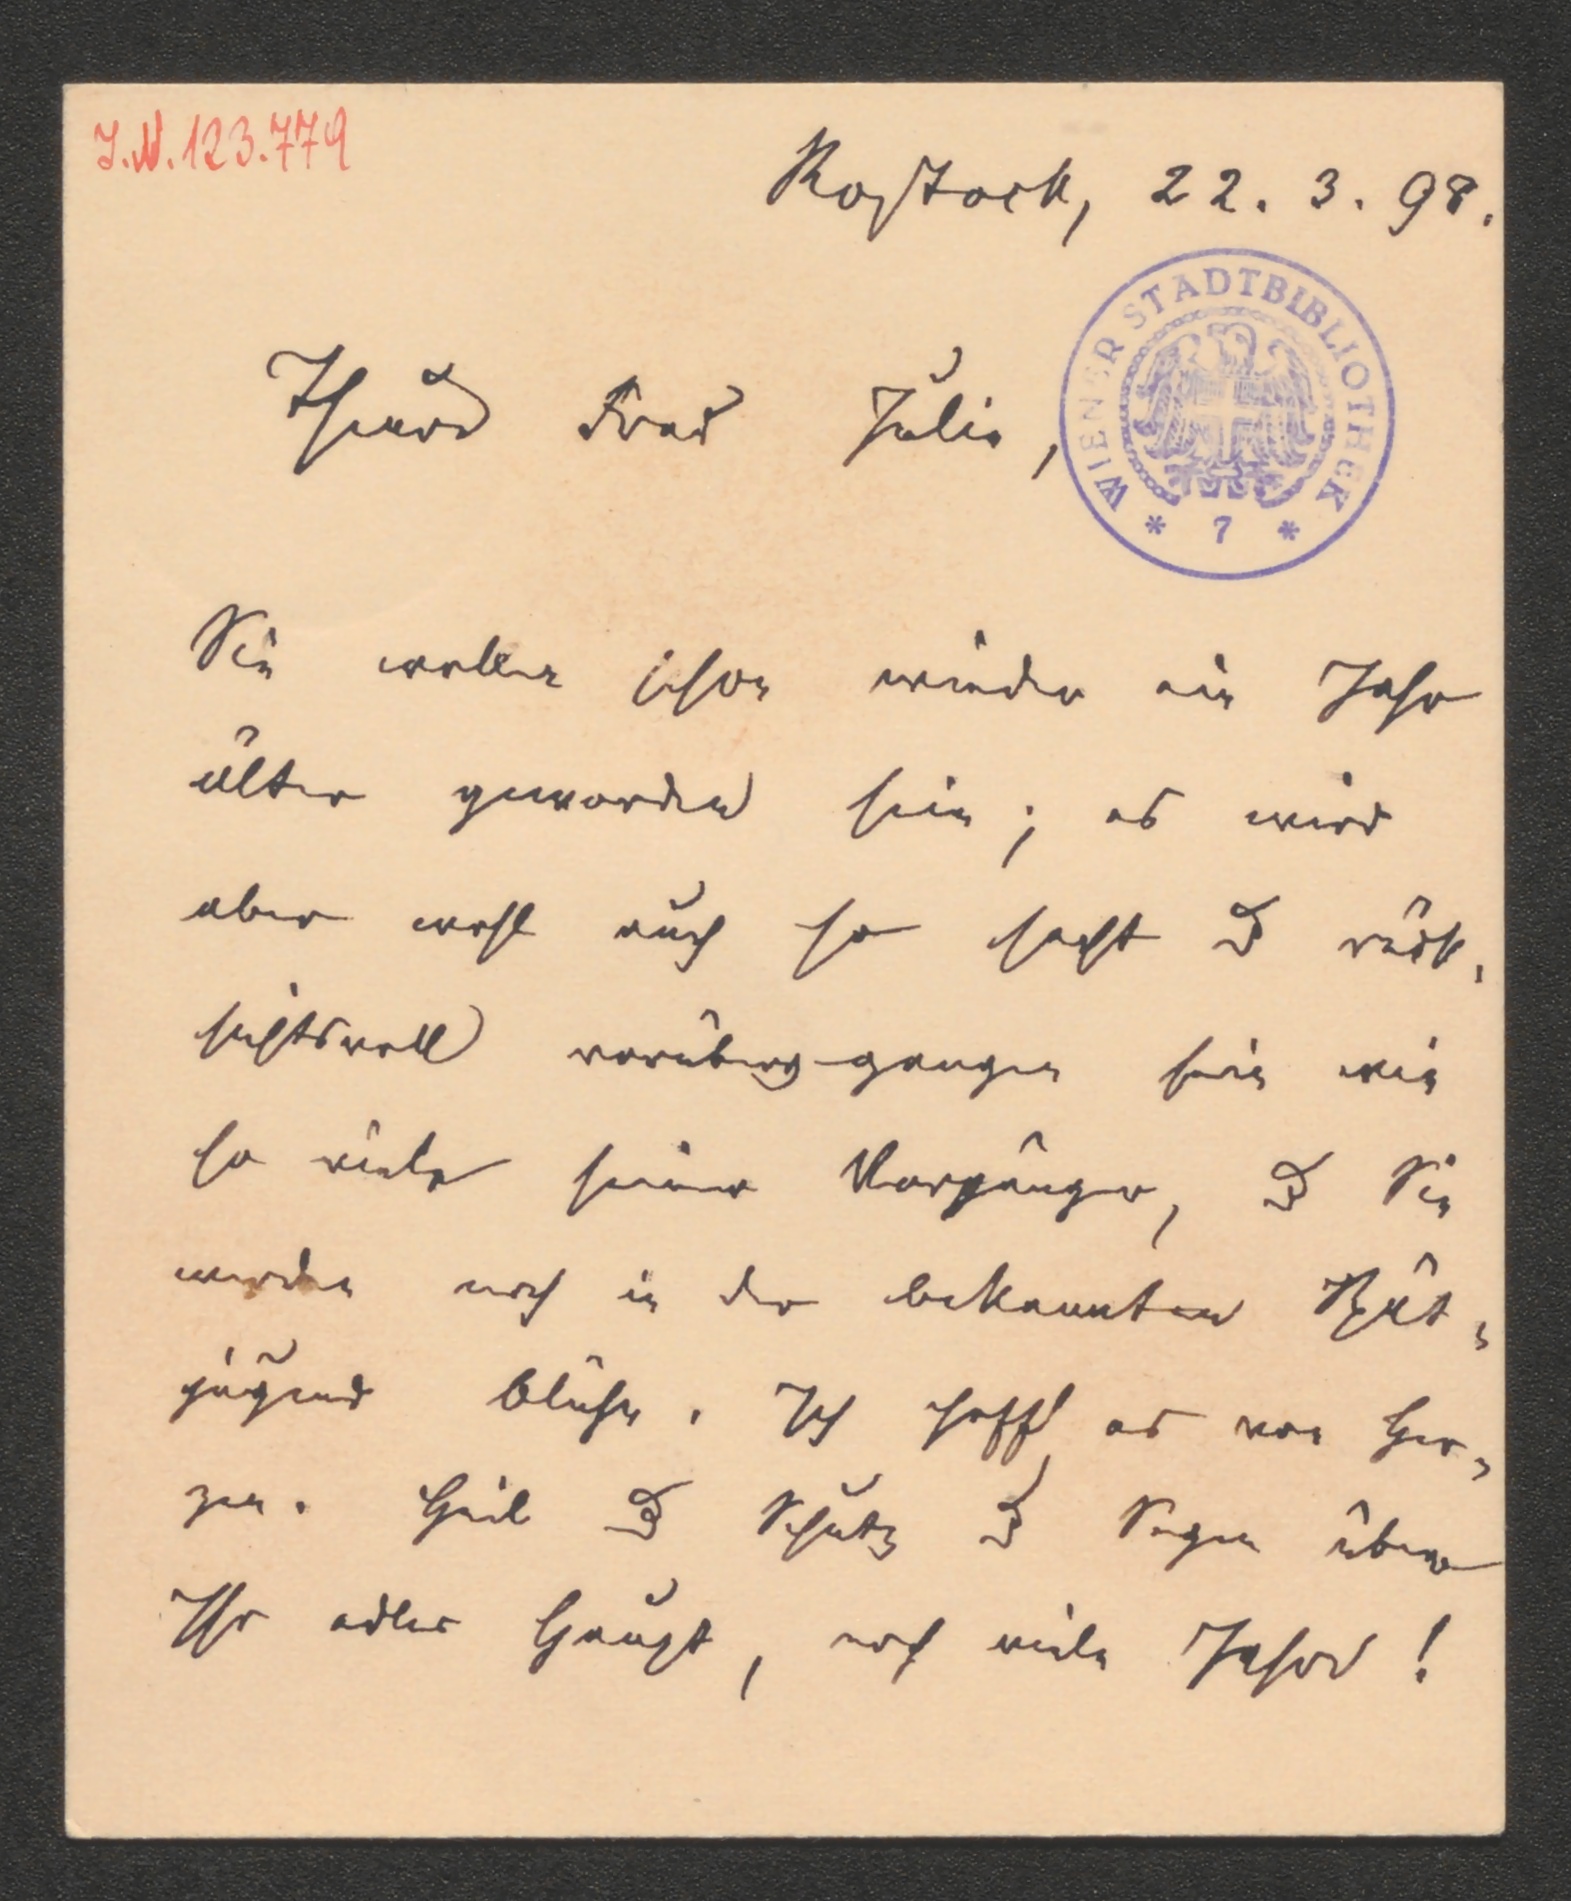 J.N. 123.779
Rostock, 22. 3. 98.
Theure Frau Julie,
WIENER STADTBIBLIOTHEK
* 7 *
Sie wollen schon wieder ein Jahr
älter geworden sein; es wird
aber wohl auch so sacht & rück-
sichtsvoll vorübergegangen sein wie
so viele seiner Vorgänger, & Sie
werden noch in der bekannten Spät-
jugend blühn. Ich hoff' es von Her-
zen. Heil & Schutz & Segen über
Ihr edles Haupt, noch viele Jahre!